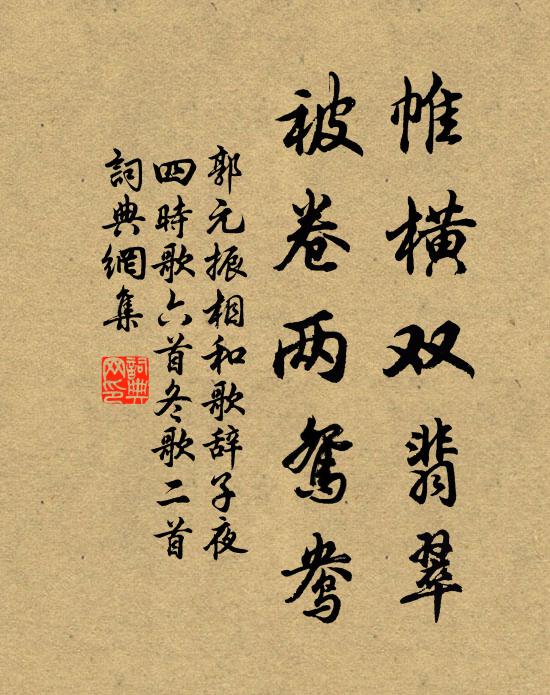 帷横双翡翠
被卷两鸳鸯
郭元振相和歌辞子夜
四時歌六首冬歌二首
詞典網集
詞典网印